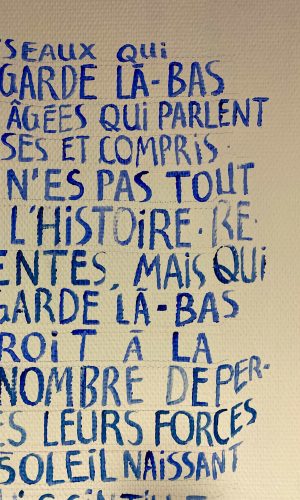 SEAUX QUI
GARDE LÀ-BAS
ÂGÉES QUI PARLENT
SES ET COMPRIS.
N'ES PAS TOUT
L'HISTOIRE. RE.
ENTES, MAIS QUI
GARDE LÀ-BAS
ROIT À LA
NOMBRE DE PER-
ES LEURS FORCES
SOLEIL NAISSANT